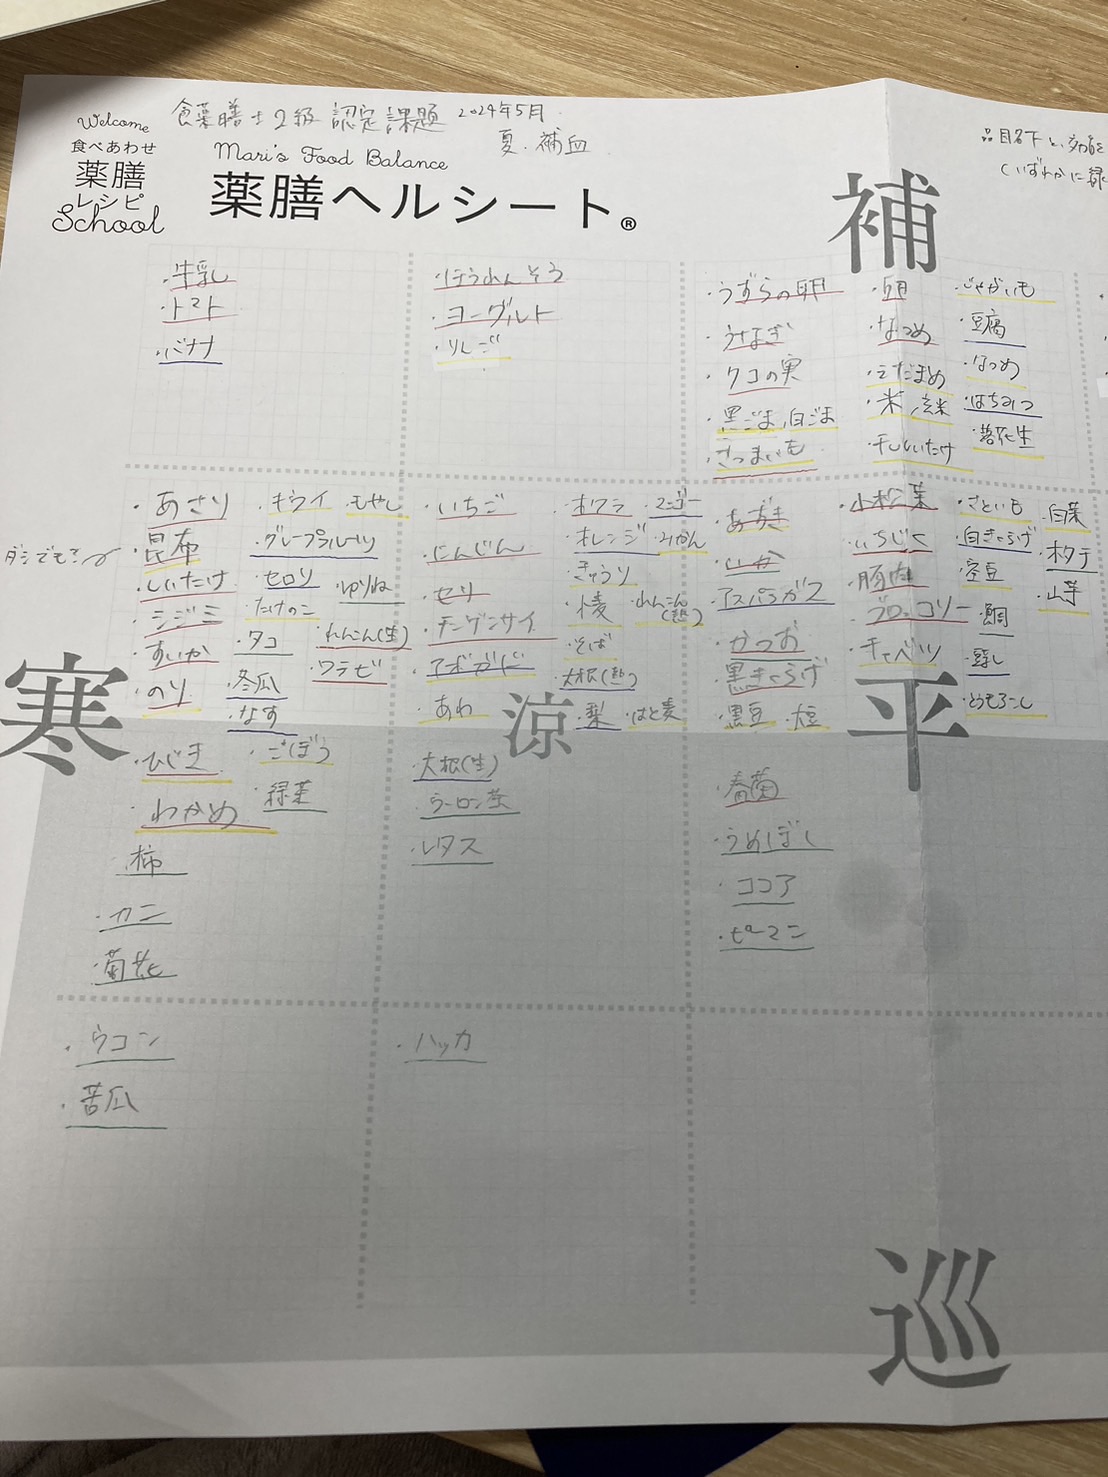 Welcome
食べあわせ
薬膳
レシピ
School
食薬膳士2級 認定課題 2024年5月
夏・補血
Mari's Food Balance
薬膳ヘルシート®
品目名下の
補
・牛乳
・トマト
・バナナ
・ほうれんそう
・ヨーグルト
・りんご
・うずらの卵 ・卵 ・じゃがいも
・うなぎ ・なつめ ・豆腐
・クコの実 ・えだまめ ・なつめ
・黒ごま,白ごま ・米,玄米 ・はちみつ
・さつまいも ・干ししいたけ ・落花生
・あさり ・キウイ ・もやし
ダシでも?
・昆布 ・グレープフルーツ
・しいたけ ・セロリ ・ゆりね
・シジミ ・たけのこ
・すいか ・タコ ・れんこん(生)
・のり ・冬瓜 ・ワラビ
・なす
・いちご ・オクラ ・マンゴー
・にんじん ・オレンジ ・みかん
・セリ ・きゅうり
・チンゲンサイ ・小麦 ・れんこん(熱)
・アボガド ・そば
・あわ ・大根(熱)
・梨 ・はと麦
・あずき ・小松菜 ・さといも ・白菜
・いか ・いちじく ・白きくらげ ・ホタテ
・アスパラガス ・豚肉 ・空豆 ・山芋
・かつお ・ブロッコリー ・鯛
・黒きくらげ ・キャベツ ・豆乳
・黒豆 ・大豆 ・とうもろこし
寒
涼
平
・ひじき ・ごぼう
・わかめ ・緑茶
・柿
・カニ
・菊花
・大根(生)
・ウーロン茶
・レタス
・春菊
・うめぼし
・ココア
・ピーマン
・ウコン
・苦瓜
・ハッカ
巡